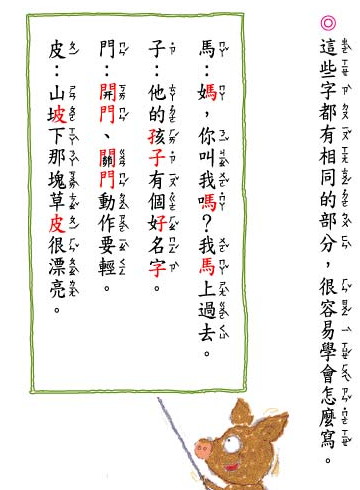 ◎這些字都有相同的部分，很容易學會怎麼寫。
馬：媽，你叫我嗎？我馬上過去。
子：他的孩子有個好名字。
門：開門、關門動作要輕。
皮：山坡下那塊草皮很漂亮。